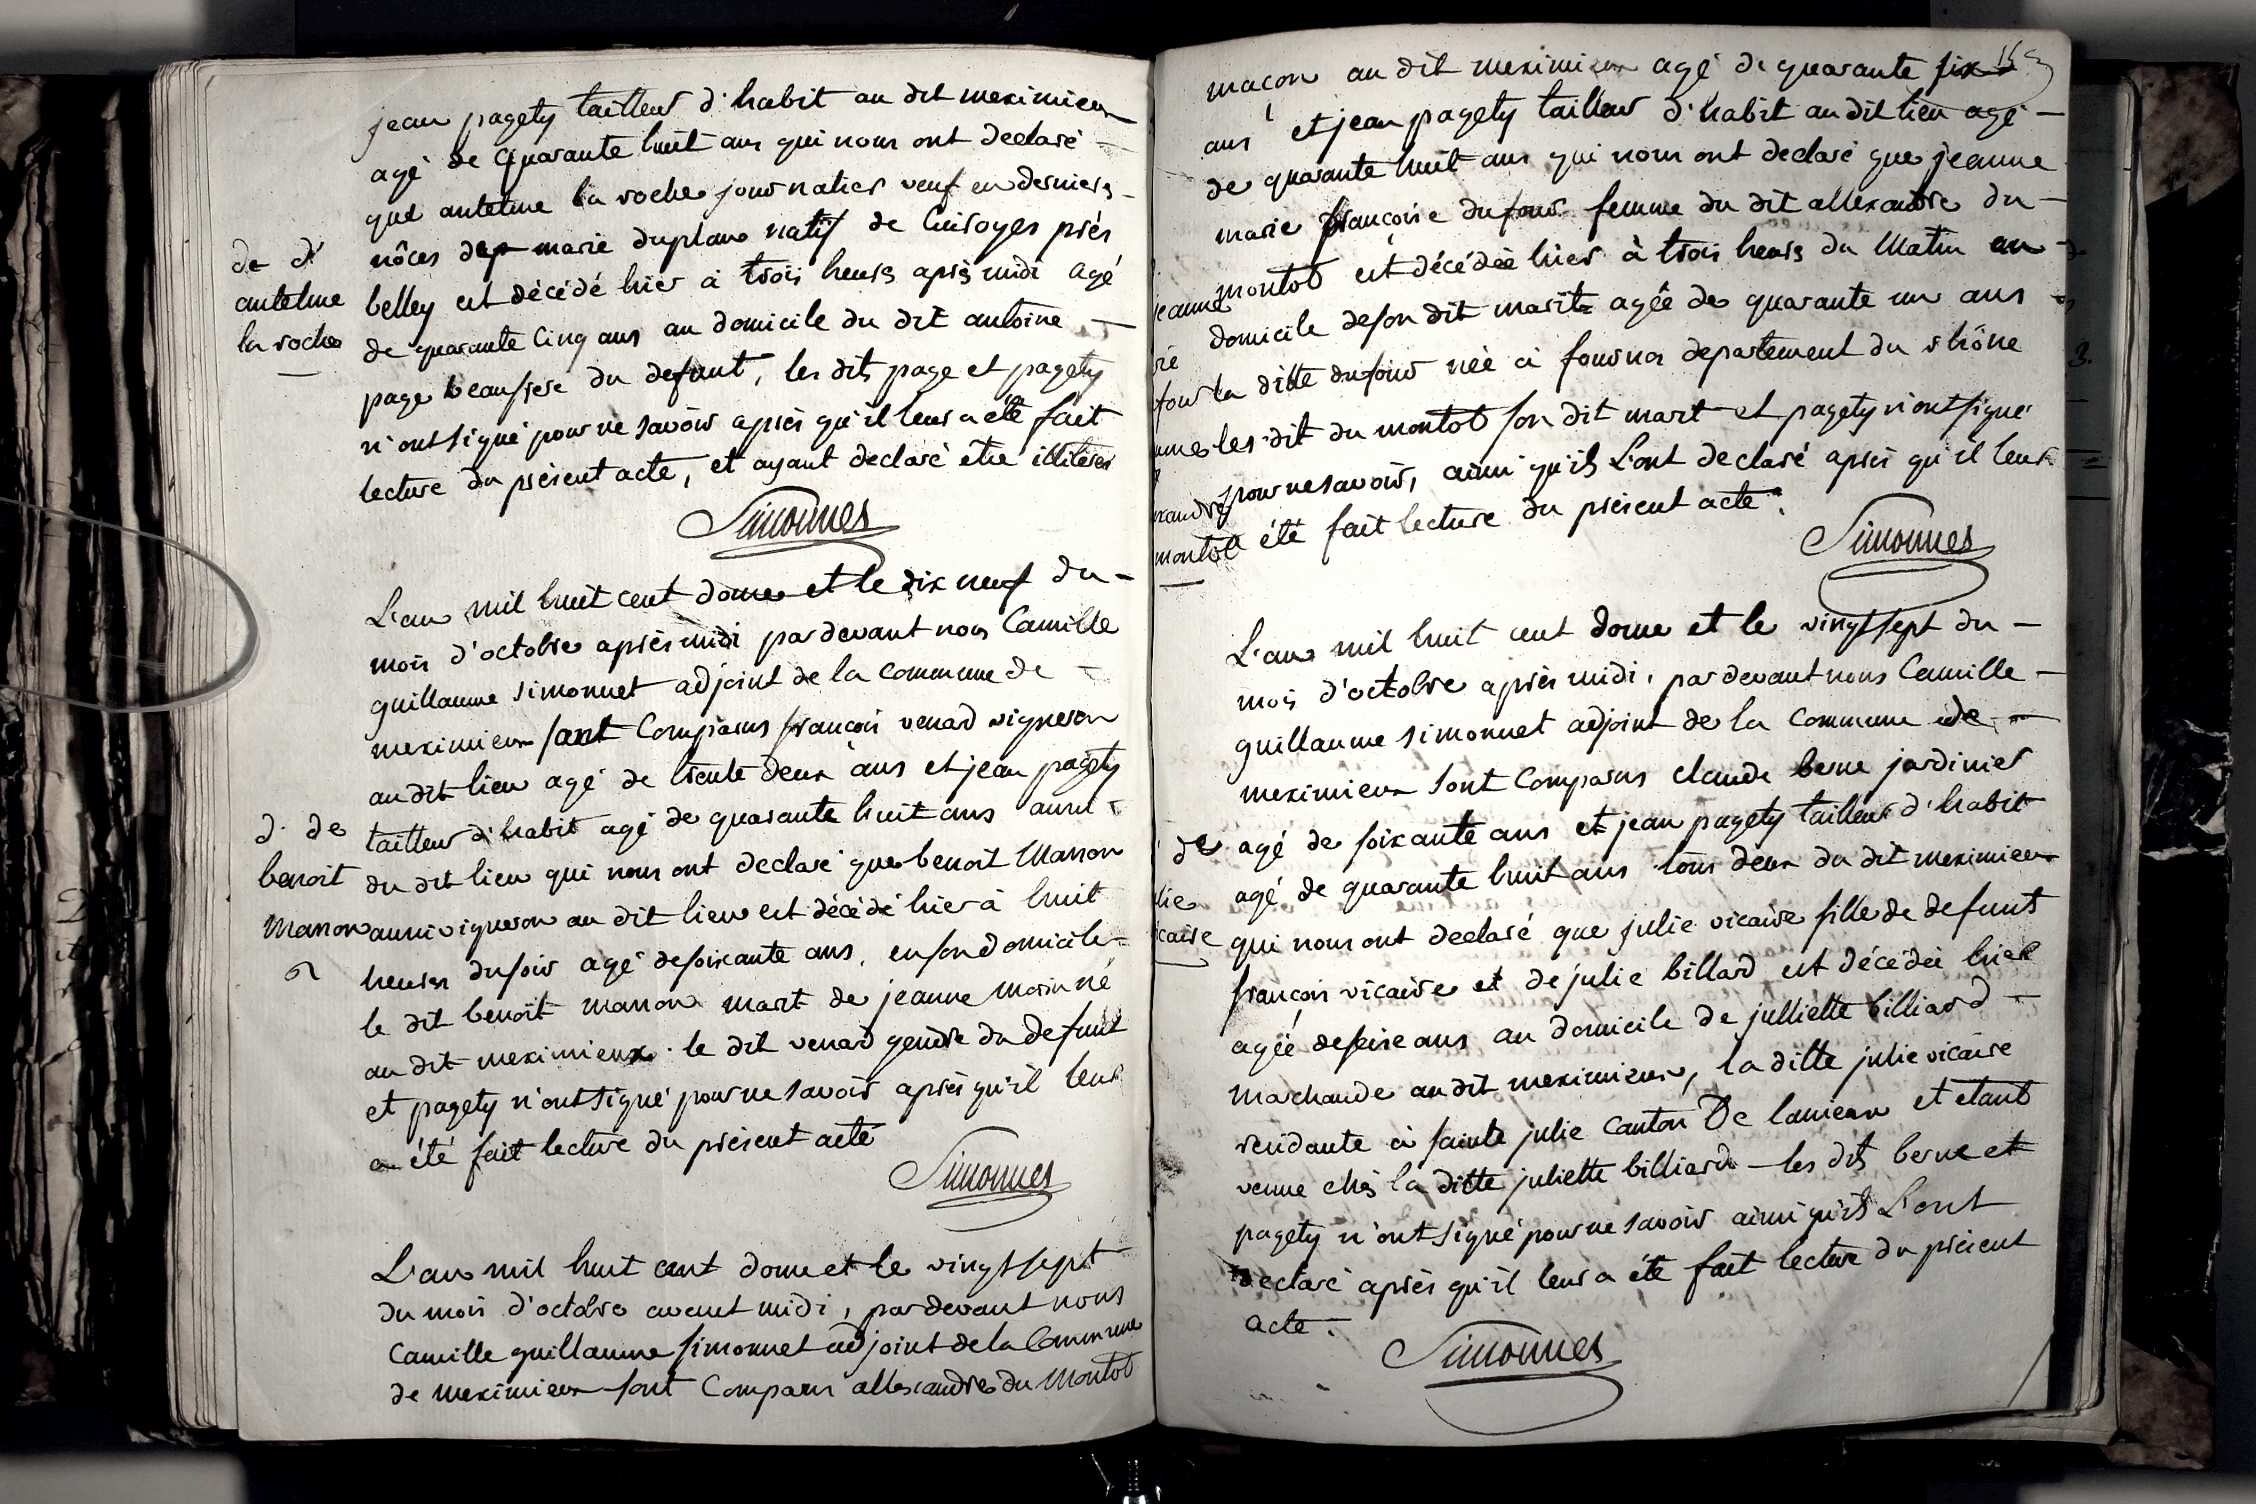 jean pagety tailleur d'habit au dit meximieux
agé de quarante huit ans qui nous ont declaré
que antelme la roche journalier veuf en derniers
de d'
antelme
la roche
nôces de marie duplan natif de Cuisoyes près
belley est décédé hier à trois heurs après midi agé
de quarante Cinq ans au domicile du dit antoine
page beaufrere du defunt, les dits page et pagety
n'ont signé pour ne savoir après qu'il leur a été fait
lecture du présent acte, et ayant declaré etre illiteres
Simonnet
L'an mil huit cent douze et le dix neuf du
mois d'octobre après midi pardevant nous Camille
guillaume simonnet adjoint de la commune de
meximieux sont Comparus françois venard vigneron
au dit lieu agé de trente deux ans et jean pagety
d. de
benoit
Manon
tailleur d'habit agé de quarante huit ans aussi
du dit lieu qui nous ont declaré que benoit Manon
aussi vigneron au dit lieu est décédé hier à huit
heures du soir agé de soixante ans, en son domicile
le dit benoît manon mari de jeanne morin né
au dit meximieux. le dit venard gendre du defunt
et pagety n'ont signé pour ne savoir après qu'il leur
a été fait lecture du présent acte
Simonnet
L'an mil huit cent douze et le vingt sept
du mois d'octobre avant midi, pardevant nous
Camille guillaume simonnet adjoint de la Commune
de meximieux sont Comparus allexandre du Montot
macon au dit meximieux agé de quarante six
ans et jean pagety tailleur d'habit au dit lieu agé
de quarante huit ans qui nous ont declaré que jeanne
marie françoise dufour femme du dit allexandre du
montot est décédée hier à trois heurs du Matin au
jeanne
domicile de son dit marit agée de quarante un ans
la ditte dufour née à fournor departement du rhône
les dit du montot son dit mari et pagety n'ont signé
pour ne savoir, ainsi qu'ils L'ont declaré après qu'il leur
montot
a été fait lecture du présent acte.
Simonnet
L'an mil huit cent douze et le vingt sept du
mois d'octobre après midi, pardevant nous Camille
guillaume simonnet adjoint de la Commune de
meximieux sont Comparus claude berne jardinier
de
agé de soixante ans et jean pagety tailleur d'habit
agé de quarante huit ans tous deux du dit meximieux
qui nous ont declaré que julie vicaire fille de defunts
françois vicaire et de julie billard est décédée hier
agée de seize ans au domicile de julliette billiard
Marchande au dit meximieux, la ditte julie vicaire
residante à sainte julie canton De lanieux et etant
venue chès la ditte juliette billiard les dits berne et
pagety n'ont signé pour ne savoir ainsi qu'ils L'ont
declaré après qu'il leur a été fait lecture du présent
acte.
Simonnet